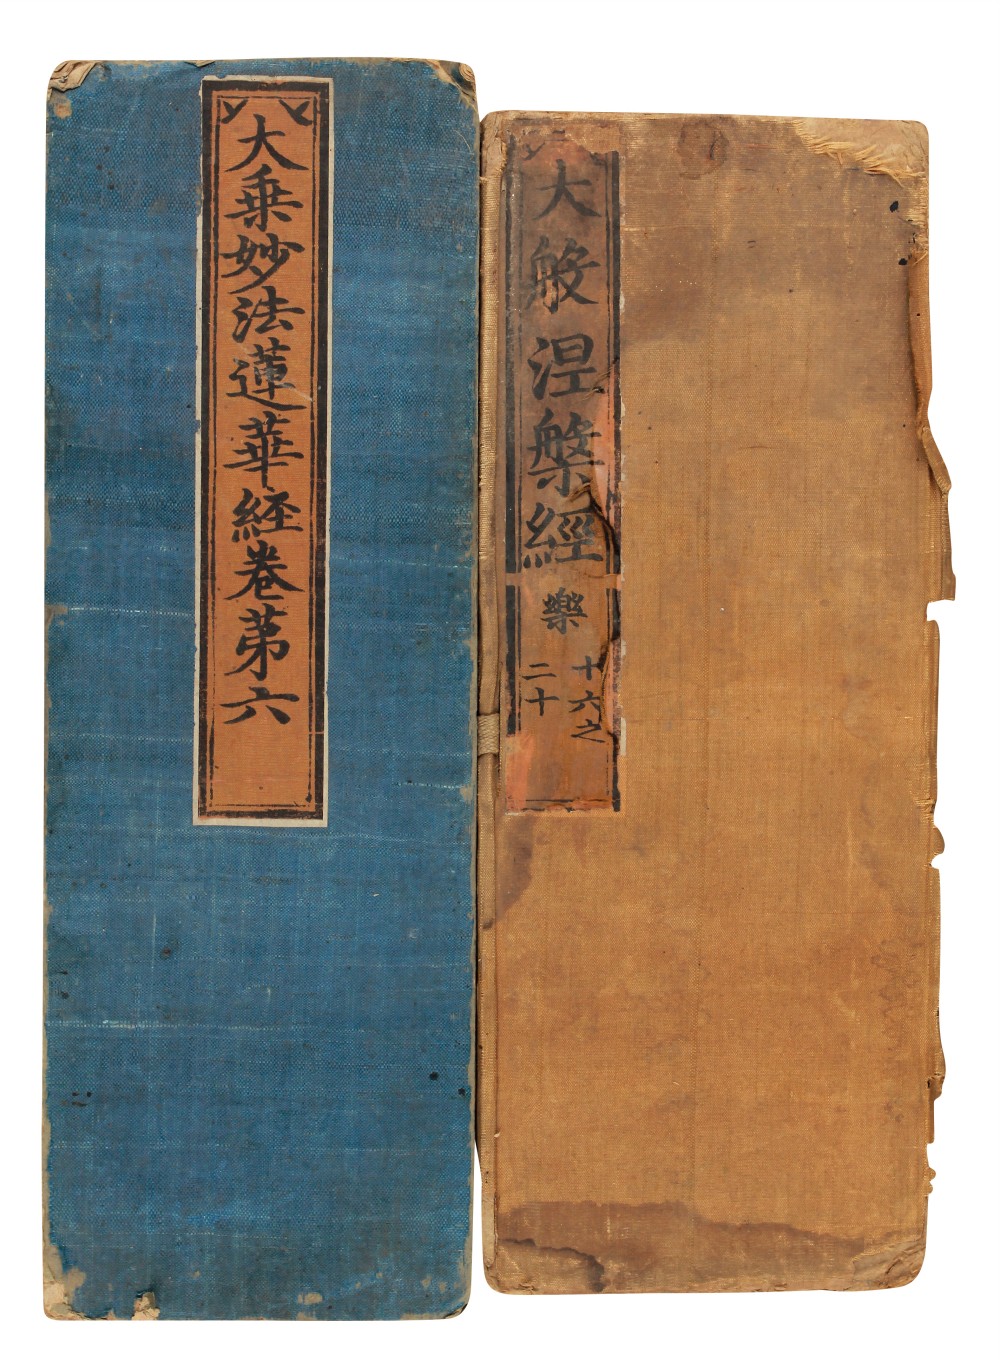 大乗妙法蓮華経卷苐六
大般涅槃經
樂
十六之
二十